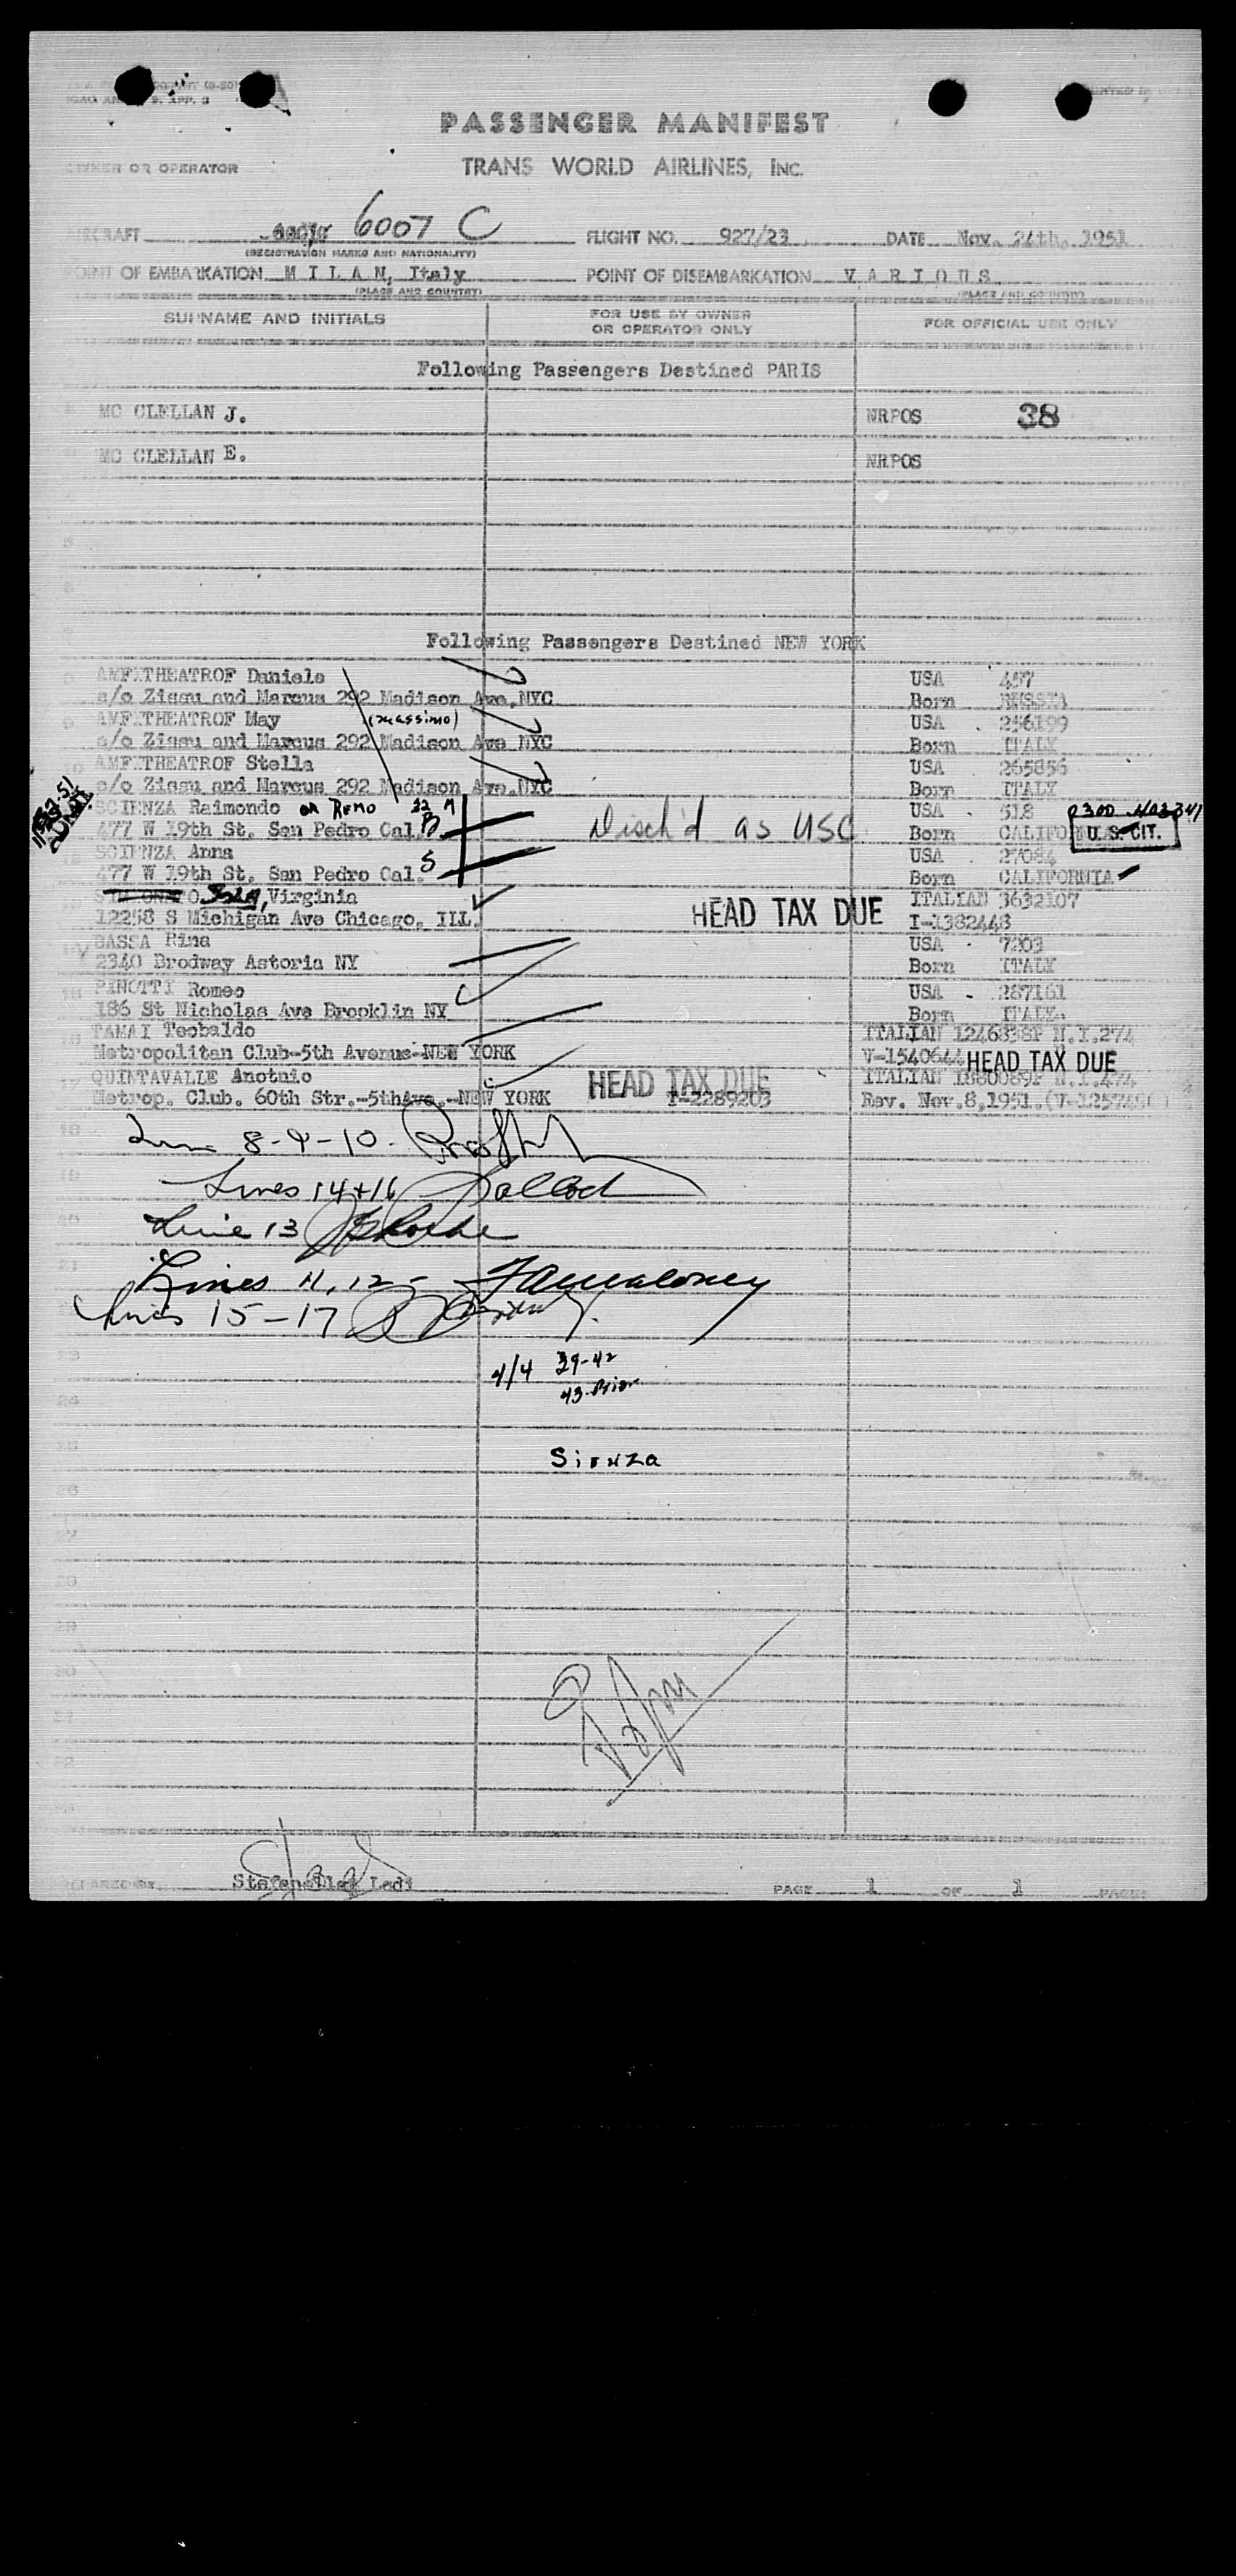 PASSENGER MANIFEST
OWNER OR OPERATOR TRANS WORLD AIRLINES, INC.
AIRCRAFT 6007 C FLIGHT NO. 927/23 DATE Nov. 24th, 1951
(REGISTRATION MARKS AND NATIONALITY)
POINT OF EMBARKATION M I L A N, Italy POINT OF DISEMBARKATION V A R I O U S
(PLACE AND COUNTRY) (PLACE AND COUNTRY)
SURNAME AND INITIALS FOR USE BY OWNER OR OPERATOR ONLY FOR OFFICIAL USE ONLY
Following Passengers Destined PARIS
MC CLELLAN J. NRPOS 38
MC CLELLAN E. NRPOS
Following Passengers Destined NEW YORK
AMFITHEATROF Daniele USA 457
c/o Zissu and Marcus 292 Madison Ave.NYC Born RUSSIA
AMFITHEATROF May (Massimo) USA 256199
c/o Zissu and Marcus 292 Madison Ave NYC Born ITALY
AMFITHEATROF Stella USA 265856
c/o Zissu and Marcus 292 Madison Ave.NYC Born ITALY
SCIENZA Raimondo OR REMO 22 M USA 518 0300 403341
477 W 19th St. San Pedro Cal. B Disch'd as USC Born CALIFO U.S. CIT.
SCIENZA Anna USA 27084
477 W 19th St. San Pedro Cal. S Born CALIFORNIA
Virginia ITALIAN 3632107
12258 S Michigan Ave Chicago, ILL. HEAD TAX DUE I-1382448
BASSA Rina USA 7203
2340 Brodway Astoria NY Born ITALY
PINOTTI Romeo USA 287161
186 St Nicholas Ave Brooklin NY Born ITALY.
TAMAI Teobaldo ITALIAN 1246838P N.I.274
Metropolitan Club-5th Avenue-NEW YORK V-1540644 HEAD TAX DUE
QUINTAVALLE Anotnio HEAD TAX DUE ITALIAN 1880089P N.I.474
Metrop. Club. 60th Str.-5thAve.-NEW YORK I-2289203 Rev. Nov.8,1951.
Line 8-9-10-
Lines 14+16
Line 13
Lines 11, 12 - Famaloney
Lines 15-17
4/4 39-42
43-Prior
Sienza
PREPARED BY PAGE 1 OF 1 PAGES